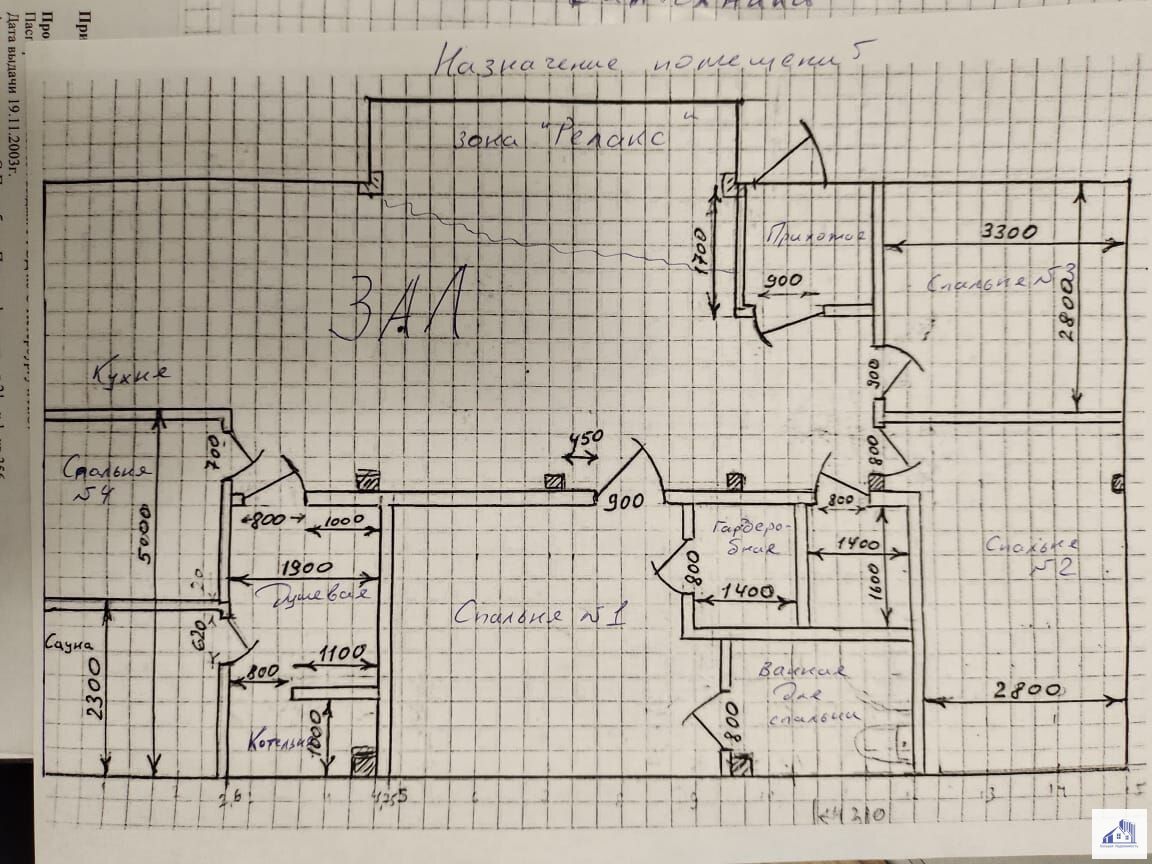 Назначение помещений
зона "Релакс"
Прихожая
1700
900
3300
Спальня №3
2800
ЗАЛ
Кухня
900
450
700
800
Спальня
№4
900
800
1000
800
Гардеро-
бная
1400
5000
1900
Душевая
20
800
1400
1600
Спальня
№2
Спальня №1
620
Сауна
1100
800
2300
Ванная
для
спальни
2800
800
Котельня
1000
6
9
13
4210
Дата выдачи 19.11.2003г.
Про
При